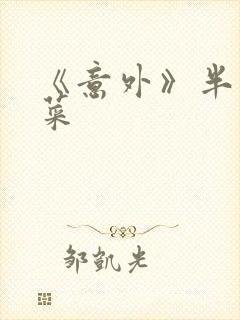 《意外》半
菜
邹凯光